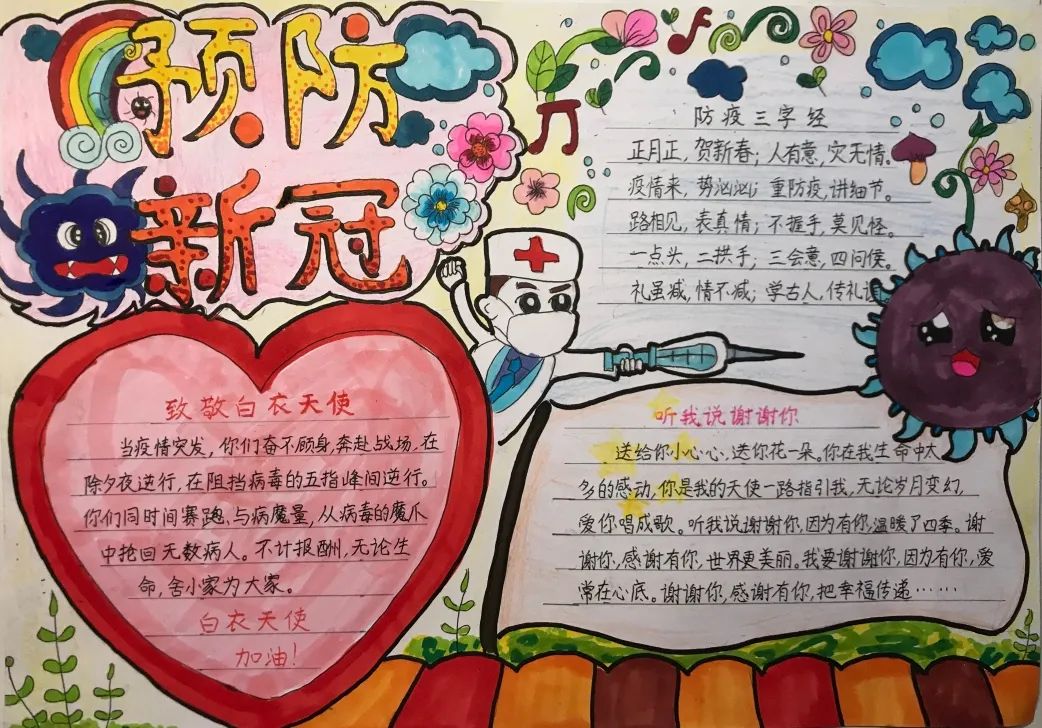 预防
新冠
防疫三字经
正月正,贺新春;人有意,灾无情。
疫情来,势汹汹;重防疫,讲细节。
路相见,表真情;不握手,莫见怪。
一点头,二拱手;三会意,四问候。
礼虽减,情不减;学古人,传礼
致敬白衣天使
当疫情突发,你们奋不顾身,奔赴战场,在
除夕夜逆行,在阻挡病毒的五指峰间逆行。
你们同时间赛跑,与病魔量,从病毒的魔爪
中抢回无数病人。不计报酬,无论生
命,舍小家为大家。
白衣天使
加油!
听我说谢谢你
送给你小心心,送你花一朵。你在我生命中太
多的感动,你是我的天使一路指引我,无论岁月变幻,
爱你唱成歌。听我说谢谢你,因为有你,温暖了四季。谢
谢你,感谢有你,世界更美丽。我要谢谢你,因为有你,爱
常在心底。谢谢你,感谢有你,把幸福传递……